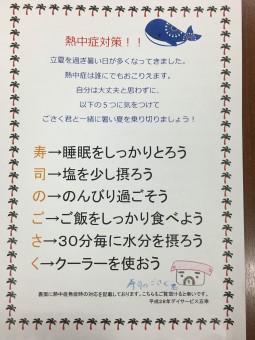 熱中症対策！！
立夏を過ぎ暑い日が多くなってきました。
熱中症は誰にでもおこりえます。
自分は大丈夫と思わずに、
以下の５つに気をつけて
ごさく君と一緒に暑い夏を乗り切りましょう！
寿→睡眠をしっかりとろう
司→塩を少し摂ろう
の→のんびり過ごそう
ご→ご飯をしっかり食べよう
さ→３０分毎に水分を摂ろう
く→クーラーを使おう
寿司のごさく君
裏面に熱中症発症時の対応を記載しております。こちらもご覧頂けると幸いです。
平成28年デイサービス五幸